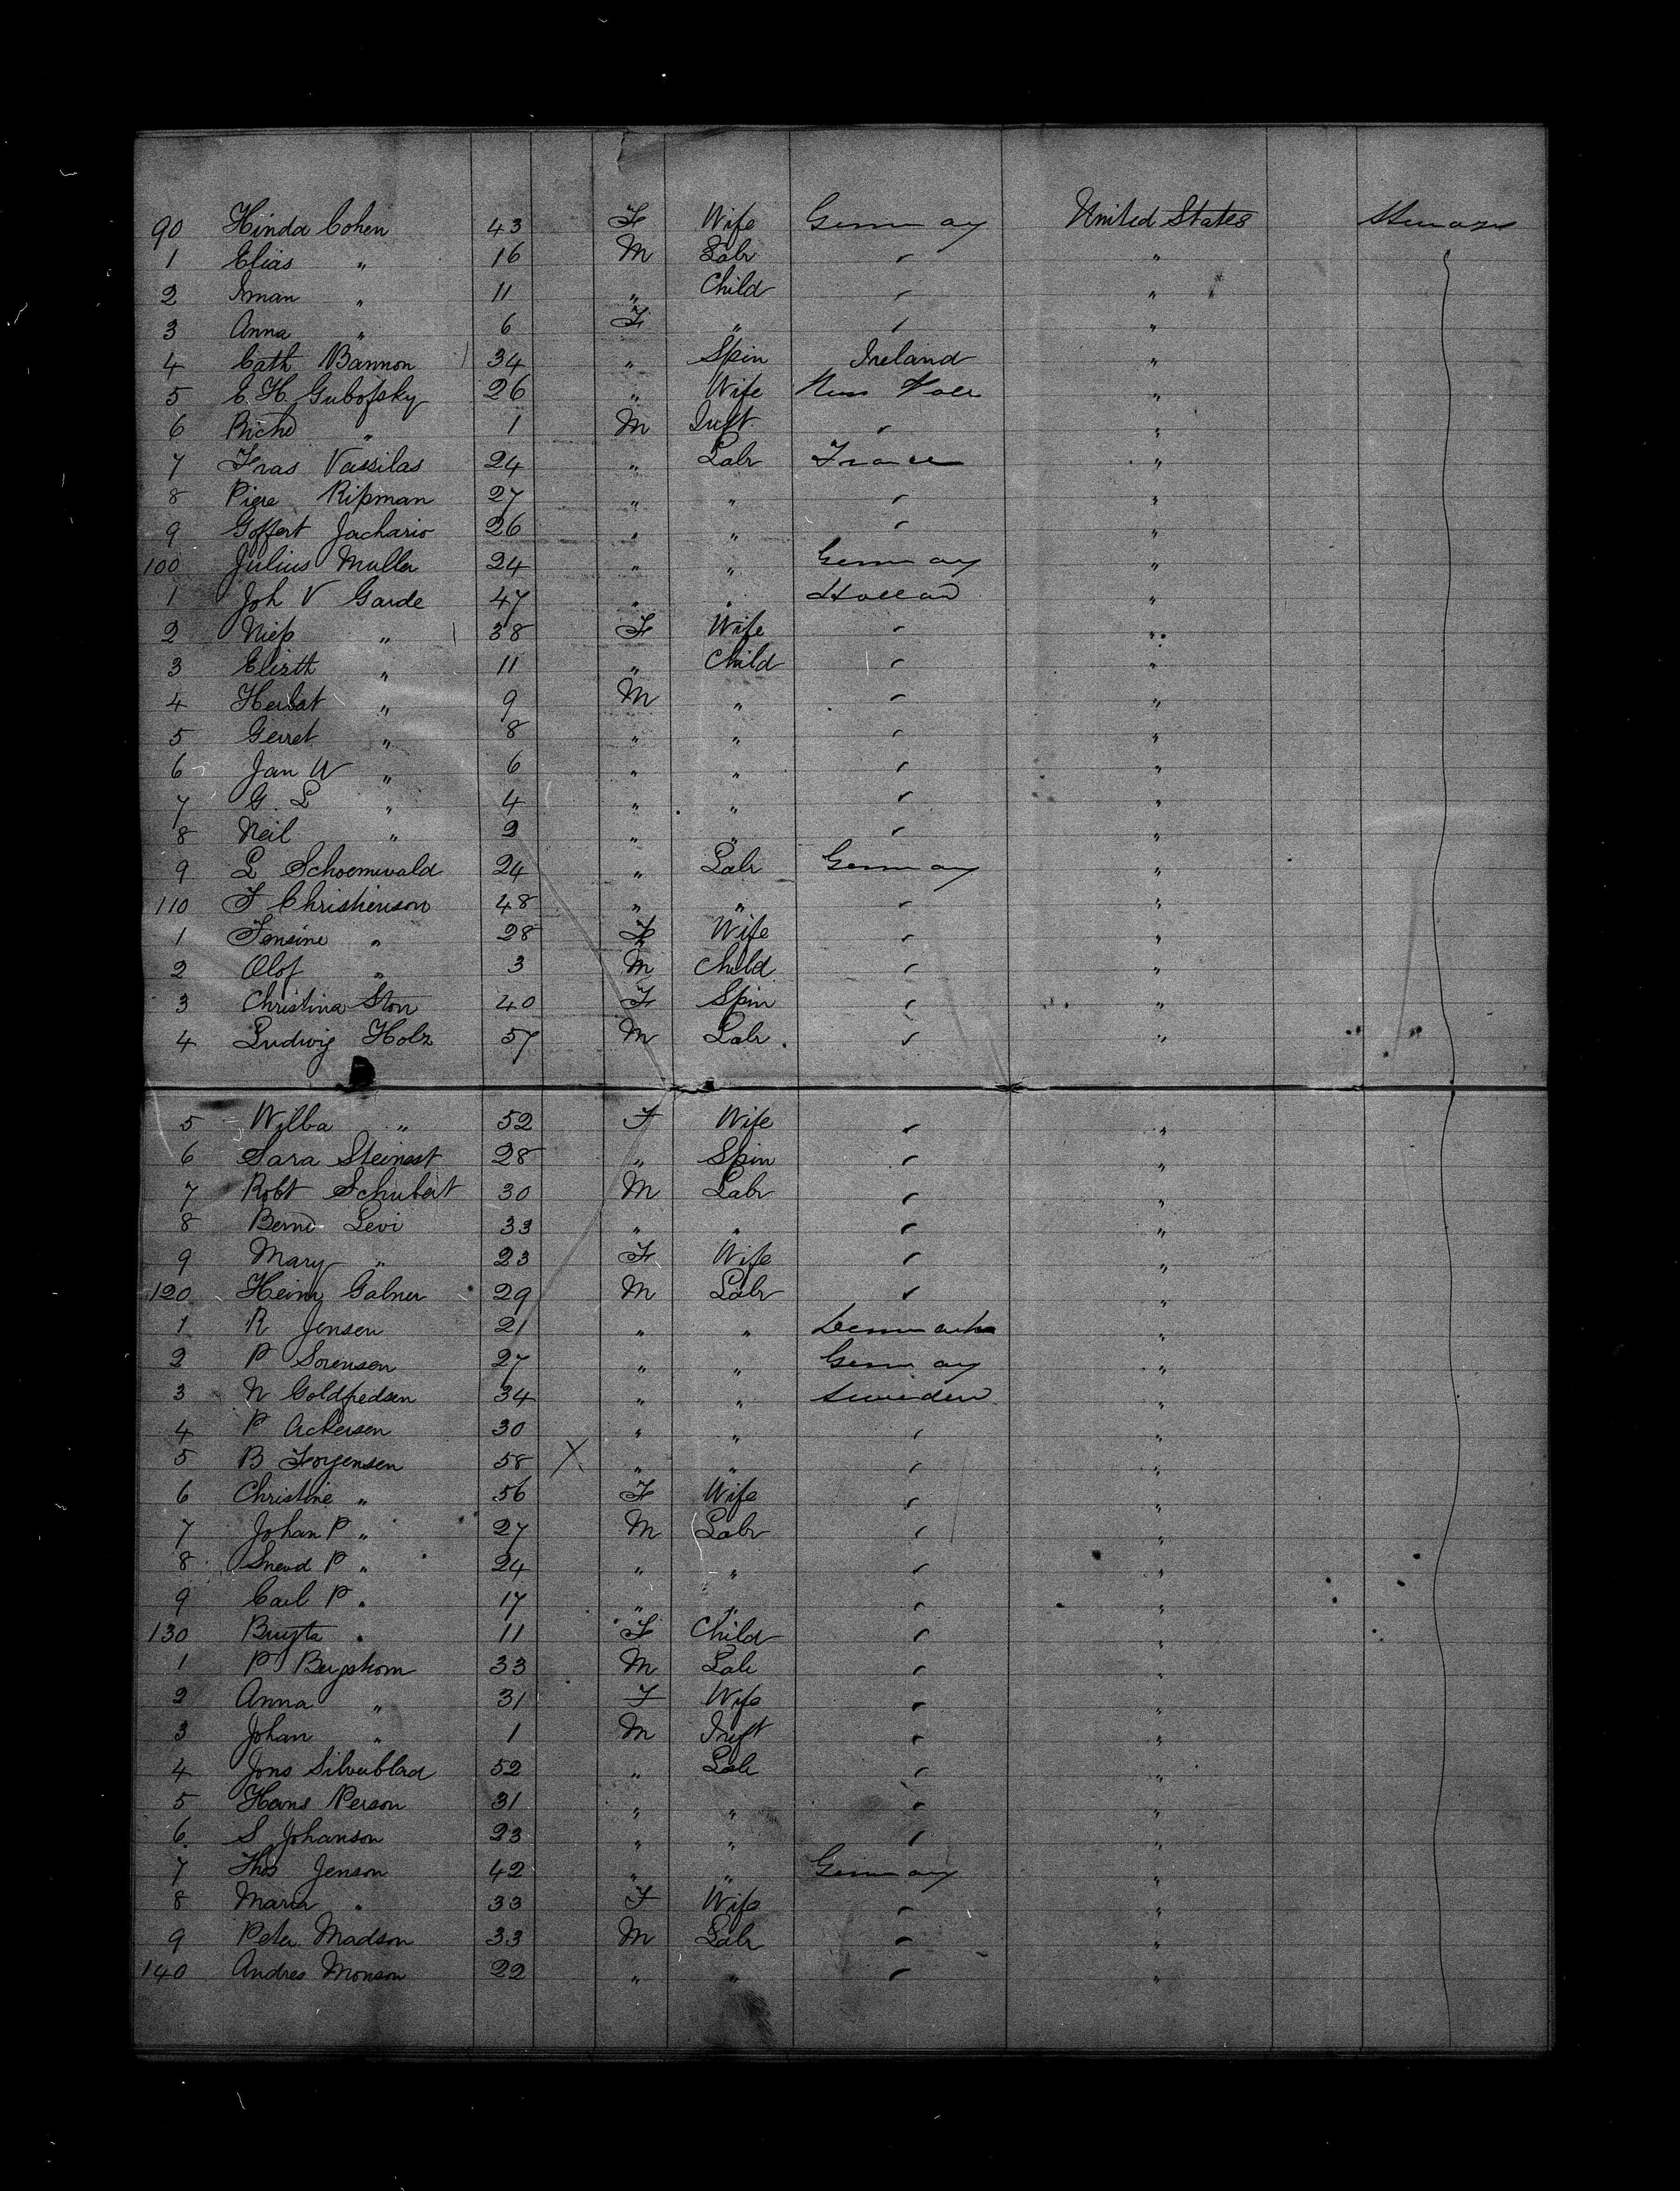 90 Hinda Cohen 43 F Wife Germany United States
1 Elias " 16 M Labr " "
2 Iman " 11 " Child " "
3 Anna " 6 F " " "
4 Cath Bannon 34 " Spin Ireland "
5 C. H. Gubofsky 26 " Wife "
6 Richd " 1 M Inft " "
7 Fras Vassilas 24 " Labr France "
8 Piere Ripman 27 " " " "
9 Goffert Jachario 26 " " " "
100 Julius Muller 24 " " Germany "
1 Joh V Garde 47 " " Holland "
2 Niep " 38 F Wife " "
3 Elizth " 11 " Child " "
4 Herbat " 9 M " " "
5 Gerret " 8 " " " "
6 Jan W " 6 " " " "
7 G. L " 4 " " " "
8 Neil " 2 " " " "
9 L Schoemwald 24 " Labr Germany "
110 F Christienson 48 " " " "
1 Jensine " 28 F Wife " "
2 Olof " 3 M Child " "
3 Christina Ston 40 F Spin " "
4 Ludwig Holz 57 M Labr " "
5 Wilba " 52 F Wife " "
6 Sara Steinest 28 " Spin " "
7 Robt Schubert 30 M Labr " "
8 Bernd Levi 33 " " " "
9 Mary " 23 F Wife " "
120 Heinr Galner 29 M Labr " "
1 R Jensen 21 " " Denmark "
2 P Sorensen 27 " " Germany "
3 N Goldpedsen 34 " " Sweden "
4 P Ackersen 30 " " " "
5 B Forjensen 58 X " " " "
6 Christine " 56 F Wife " "
7 Johan P " 27 M Labr " "
8 Snevd P " 24 " " " "
9 Carl P " 17 " " " "
130 Buyta " 11 F Child " "
1 P Bergstrom 33 M Labr " "
2 Anna " 31 F Wife " "
3 Johan " 1 M Inft " "
4 Jons Silverblad 52 " Labr " "
5 Hans Person 31 " " " "
6 S Johanson 23 " " " "
7 Thos Jenson 42 " " Germany "
8 Maria " 33 F Wife " "
9 Peter Madson 33 M Labr " "
140 Andres Monson 22 " " " "